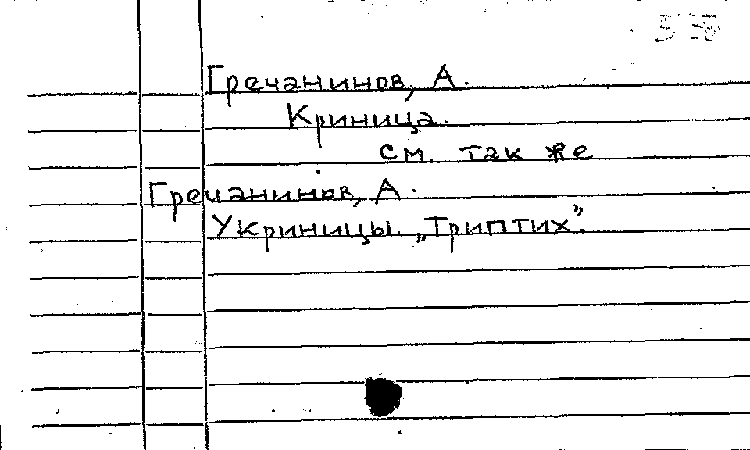 Гречанинов, А.
Криница.
см. так же
Гречанинов, А.
У криницы. „Триптих”.